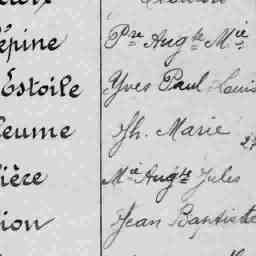 épine Pre Augte Mie
Estoile Yves Paul Louis
eume Jh. Marie
ière Mie Augte Jules
ion Jean Baptiste